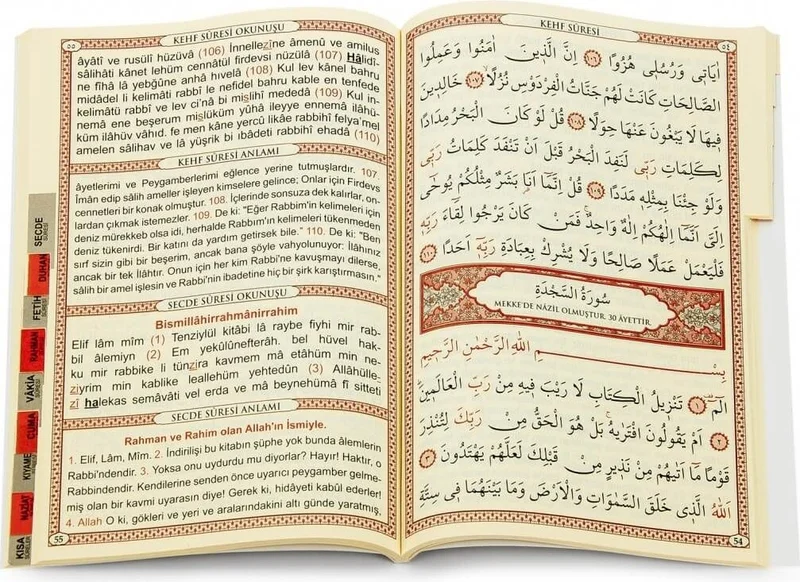 ٥٤
KEHF SÛRESİ
اٰيَاتٖى وَرُسُلٖى هُزُوًا ﴿١٠٦﴾ اِنَّ الَّذٖينَ اٰمَنُوا وَعَمِلُوا
الصَّالِحَاتِ كَانَتْ لَهُمْ جَنَّاتُ الْفِرْدَوْسِ نُزُلًا ﴿١٠٧﴾ خَالِدٖينَ
فٖيهَا لَا يَبْغُونَ عَنْهَا حِوَلًا ﴿١٠٨﴾ قُلْ لَوْ كَانَ الْبَحْرُ مِدَادًا
لِكَلِمَاتِ رَبّٖى لَنَفِدَ الْبَحْرُ قَبْلَ اَنْ تَنْفَدَ كَلِمَاتُ رَبّٖى
وَلَوْ جِئْنَا بِمِثْلِهٖ مَدَدًا ﴿١٠٩﴾ قُلْ اِنَّمَٓا اَنَا۬ بَشَرٌ مِثْلُكُمْ يُوحٰٓى
اِلَىَّ اَنَّمَٓا اِلٰهُكُمْ اِلٰهٌ وَاحِدٌ فَمَنْ كَانَ يَرْجُوا لِقَٓاءَ رَبِّهٖ
فَلْيَعْمَلْ عَمَلًا صَالِحًا وَلَا يُشْرِكْ بِعِبَادَةِ رَبِّهٖٓ اَحَدًا ﴿١١٠﴾
سُورَةُ السَّجْدَةِ
MEKKE'DE NÂZİL OLMUŞTUR. 30 ÂYETTİR.
بِسْمِ اللّٰهِ الرَّحْمٰنِ الرَّحٖيمِ
الٓمٓ ﴿١﴾ تَنْزٖيلُ الْكِتَابِ لَا رَيْبَ فٖيهِ مِنْ رَبِّ الْعَالَمٖينَ
﴿٢﴾ اَمْ يَقُولُونَ افْتَرٰيهُ بَلْ هُوَ الْحَقُّ مِنْ رَبِّكَ لِتُنْذِرَ
قَوْمًا مَٓا اَتٰيهُمْ مِنْ نَذٖيرٍ مِنْ قَبْلِكَ لَعَلَّهُمْ يَهْتَدُونَ ﴿٣﴾
اَللّٰهُ الَّذٖى خَلَقَ السَّمٰوَاتِ وَالْاَرْضَ وَمَا بَيْنَهُمَا فٖى سِتَّةِ
54
٥٥
KEHF SÛRESİ OKUNUŞU
âyâtî ve rusülî hüzüvâ (106) İnnellezîne âmenû ve amilus
sâlihâti kânet lehüm cennâtül firdevsi nüzülâ (107) Hâlidî-
ne fîhâ lâ yebğûne anhâ hıvelâ (108) Kul lev kânel bahru
midâdel li kelimâti rabbî le nefidel bahru kable en tenfede
kelimâtü rabbî ve lev ci'nâ bi mislihî mededâ (109) Kul in-
nemâ ene beşerum mislüküm yûhâ ileyye ennemâ ilâhü-
küm ilâhüv vâhıd. fe men kâne yercû likâe rabbihî felya'mel
amelen sâlihav ve lâ yüşrik bi ıbâdeti rabbihî ehadâ (110)
KEHF SÛRESİ ANLAMI
âyetlerimi ve Peygamberlerimi eğlence yerine tutmuşlardır. 107.
İman edip sâlih ameller işleyen kimselere gelince; Onlar için Firdevs
cennetleri bir konak olmuştur. 108. İçlerinde sonsuza dek kalırlar, on-
lardan çıkmak istemezler. 109. De ki: "Eğer Rabbim'in kelimeleri için
deniz mürekkeb olsa idi, herhalde Rabbım'ın kelimeleri tükenmeden
deniz tükenirdi. Bir katını da yardım getirsek bile." 110. De ki: "Ben
sırf sizin gibi bir beşerim, ancak bana şöyle vahyolunuyor: İlâhınız
ancak bir tek İlâhtır. Onun için her kim Rabbi'ne kavuşmayı dilerse,
sâlih bir amel işlesin ve Rabbi'nin ibadetine hiç bir şirk karıştırmasın."
SECDE SÛRESİ OKUNUŞU
Bismillâhirrahmânirrahim
Elif lâm mîm (1) Tenziylül kitâbi lâ raybe fiyhi mir rab-
bil âlemiyn (2) Em yekûlûnefterâh. bel hüvel hak-
ku mir rabbike li tünzira kavmem mâ etâhüm min ne-
ziyrim min kablike leallehüm yehtedûn (3) Allâhülle-
zî halekas semâvâti vel erda ve mâ beynehümâ fî sitteti
SECDE SÛRESİ ANLAMI
Rahman ve Rahim olan Allah'ın İsmiyle.
1. Elif, Lâm, Mîm. 2. İndirilişi bu kitabın şüphe yok bunda âlemlerin
Rabbi'ndendir. 3. Yoksa onu uydurdu mu diyorlar? Hayır! Haktır, o
Rabbindendir. Kendilerine senden önce uyarıcı peygamber gelme-
miş olan bir kavmi uyarasın diye! Gerek ki, hidâyeti kabûl ederler!
4. Allah O ki, gökleri ve yeri ve aralarındakini altı günde yaratmış,
55
SECDE SÛRESİ
DUHAN
FETİH SÛRESİ
RAHMAN
VÂKIA SÛRESİ
CUMA
KIYAME
NAZİAT
KISA SÛRELER